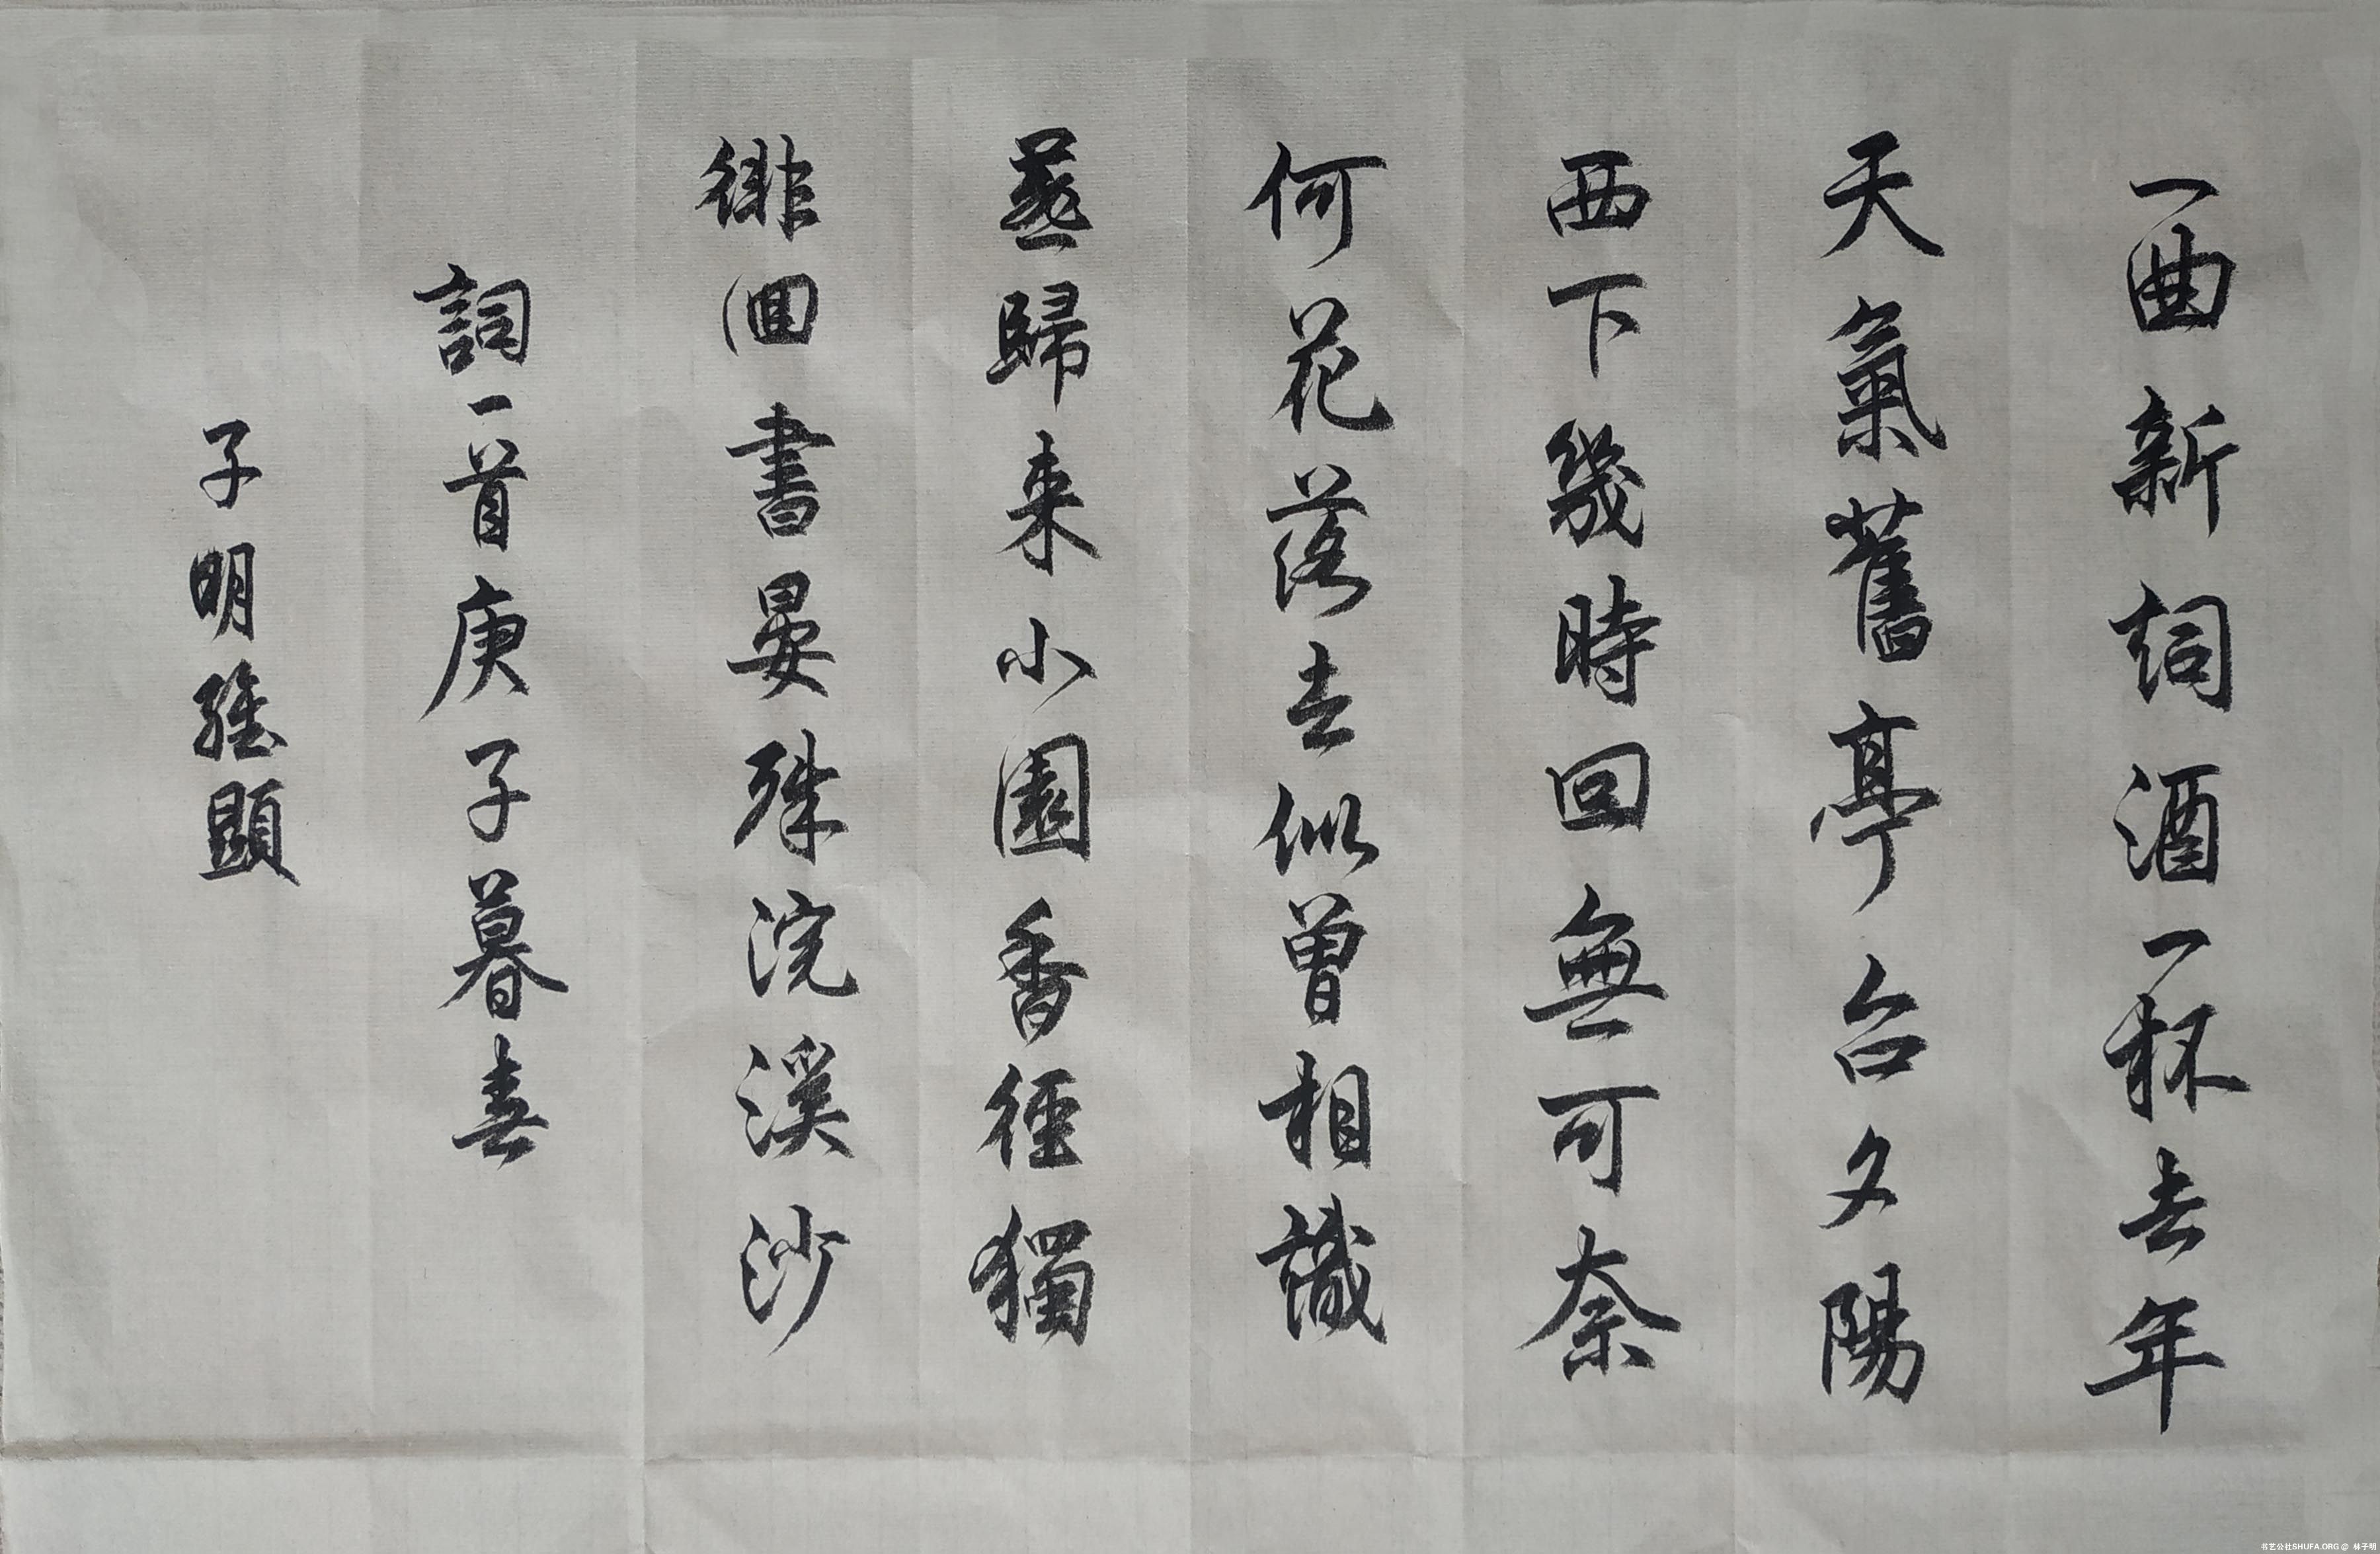 一曲新詞酒一杯去年
天氣舊亭台夕陽
西下幾時回無可奈
何花落去似曾相識
燕歸来小園香徑獨
徘徊書晏殊浣溪沙
詞一首庚子暮春
子明
书艺公社SHUFA.ORG @ 林子明